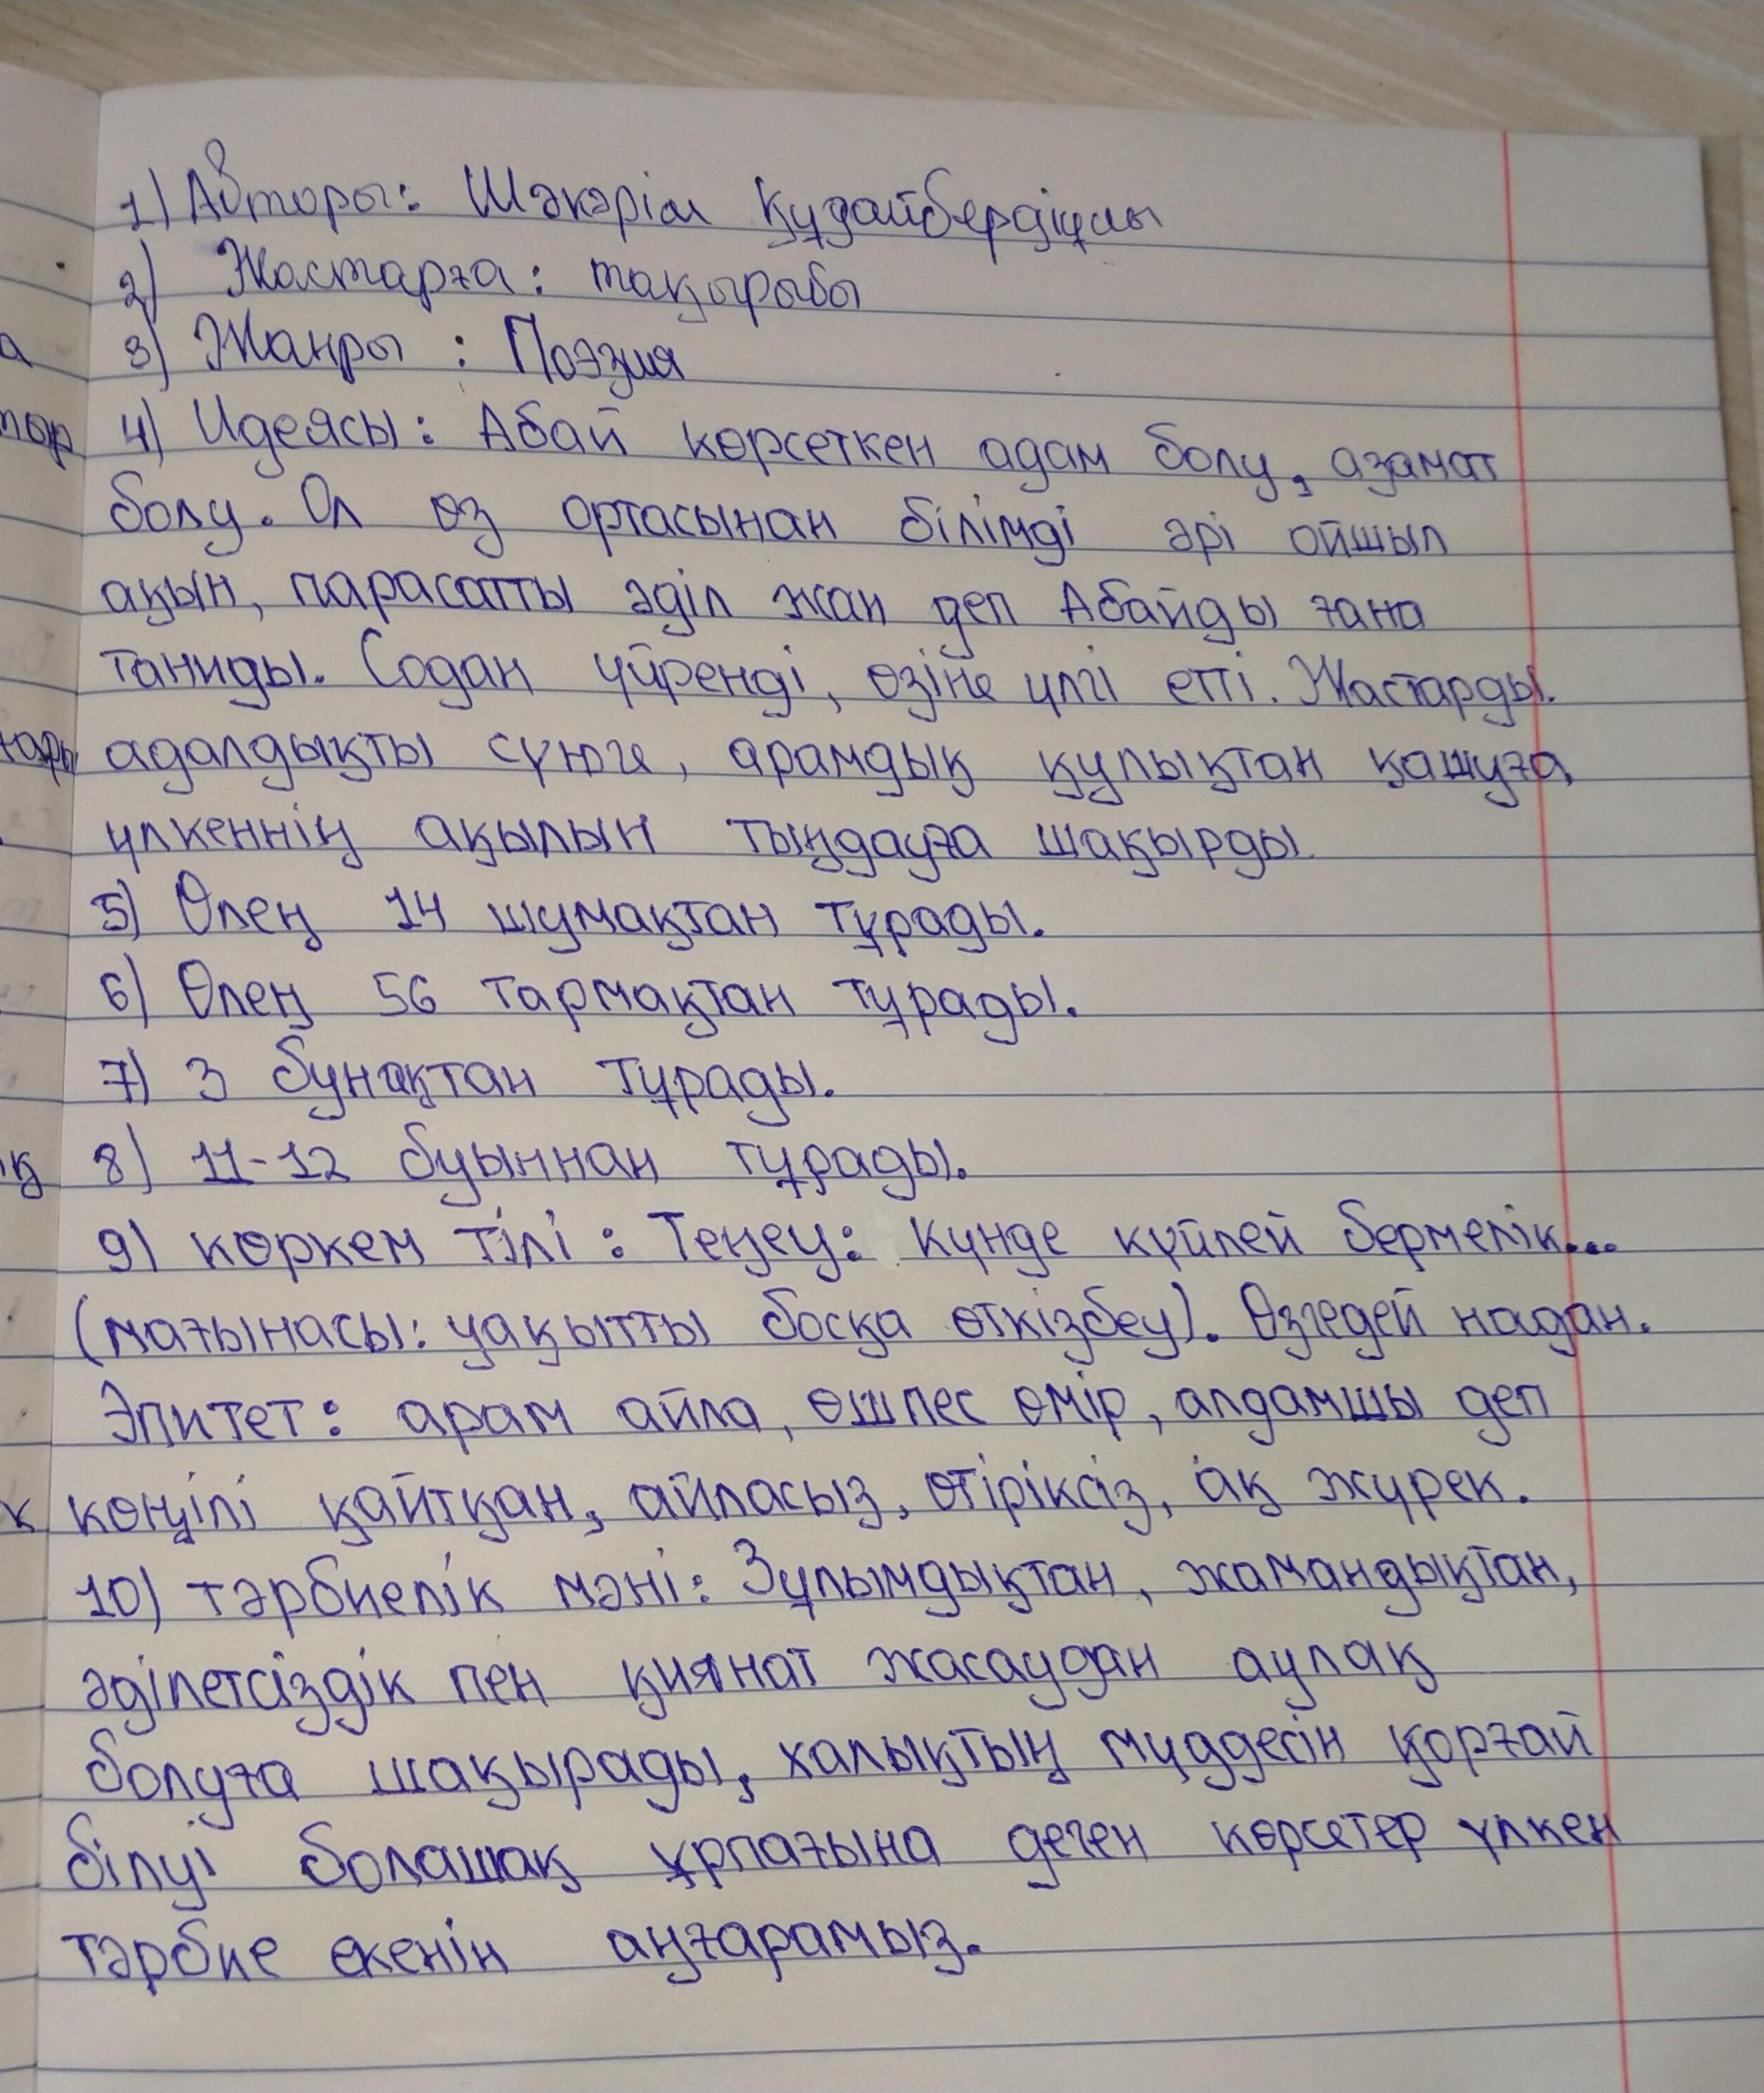 1) Авторы: Шәкәрім Құдайбердіұлы
2) Жастарға: тақырыбы
3) Жанры: Поэзия
4) Идеясы: Абай көрсеткен адам болу, азамат
болу. Ол өз ортасынан білімді әрі ойшыл
ақын, парасатты әділ жан деп Абайды ғана
таниды. Содан үйренді, өзіне үлгі етті. Жастарды
адалдықты сүюге, арамдық қулықтан қашуға,
үлкеннің ақылын тыңдауға шақырды.
5) Өлең 14 шумақтан тұрады.
6) Өлең 56 тармақтан тұрады.
7) 3 бунақтан тұрады.
8) 11-12 буыннан тұрады.
9) көркем тілі: Теңеу: Күнде күйлей бермелік...
(мағынасы: уақытты босқа өткізбеу). Өзгедей надан.
Эпитет: арам айла, өшпес өмір, алдамшы деп
көңілі қайтқан, айласыз, өтіріксіз, ақ жүрек.
10) тәрбиелік мәні: Зұлымдықтан, жамандықтан,
әділетсіздік пен қиянат жасаудан аулақ
болуға шақырады, халықтың мүддесін қорғай
білуі болашақ ұрпағына деген көрсетер үлкен
тәрбие екенін аңғарамыз.